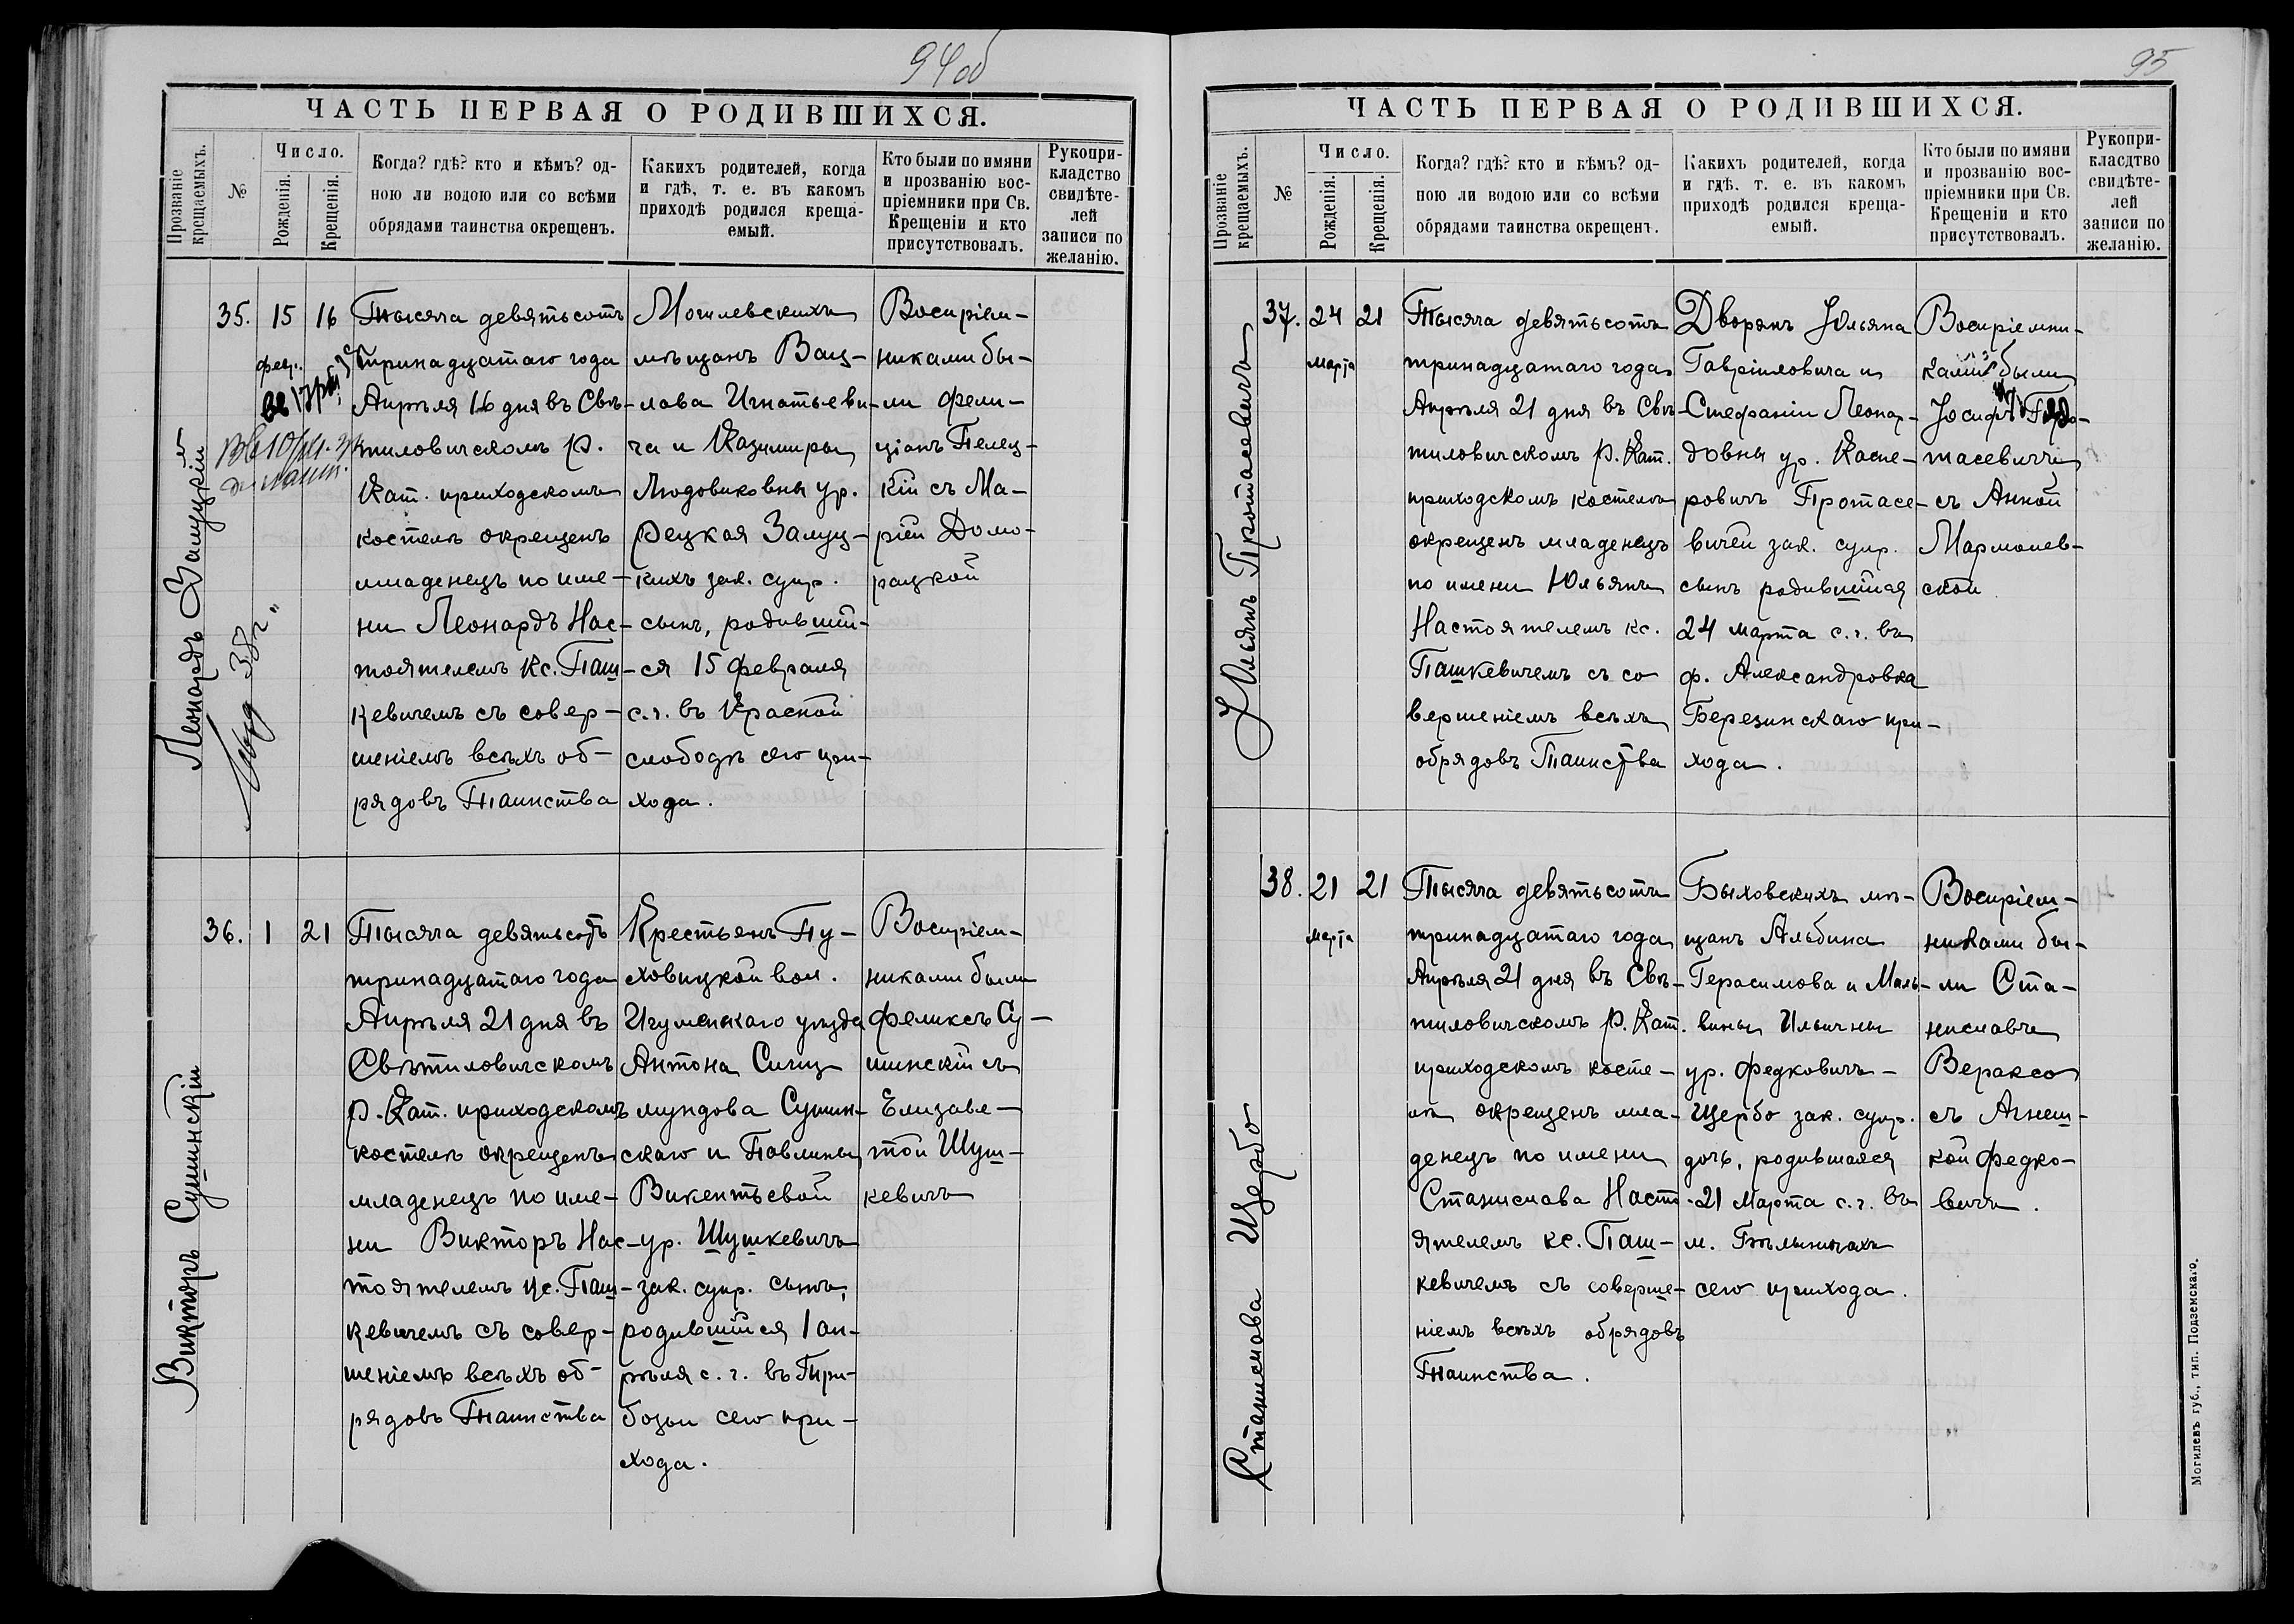 94об
ЧАСТЬ ПЕРВАЯ О РОДИВШИХСЯ.
Прозваніе крещаемыхъ.
№
Число.
Рожденія.
Крещенія.
Когда? гдѣ? кто и кѣмъ? од-
ною ли водою или со всѣми
обрядами таинства окрещенъ.
Какихъ родителей, когда
и гдѣ, т. е. въ какомъ
приходѣ родился креща-
емый.
Кто были по имяни
и прозванію вос-
пріемники при Св.
Крещеніи и кто
присутствовалъ.
Рукопри-
кладство
свидѣте-
лей
записи по
желанію.
Леонардъ Залуцкій
35.
15
февр.
16
Тысяча девятьсотъ
тринадцатаго года
Апрѣля 16 дня въ Свѣ-
тиловичскомъ Р.
Кат. приходскомъ
костелѣ окрещенъ
младенецъ по име-
ни Леонардъ Нас-
тоятелемъ Кс. Паш-
кевичемъ съ совер-
шеніемъ всѣхъ об-
рядовъ Таинства
Могилевскихъ
мѣщанъ Вац-
лава Игнатьеви-
ча и Казимиры
Людовиковны ур.
Рецкая Залуц-
кихъ зак. супр.
сынъ, родивший-
ся 15 февраля
с.г. въ Красной
слободѣ сего при-
хода.
Воспріем-
никами бы-
ли Фели-
ціанъ Пелец-
кій съ Ма-
ріей Домо-
рацкой
Викторъ Сушинскій
36.
1
21
Тысяча девятьсотъ
тринадцатаго года
Апрѣля 21 дня въ
Свѣтиловичскомъ
Р. Кат. приходскомъ
костелѣ окрещенъ
младенецъ по име-
ни Викторъ Нас-
тоятелемъ Кс. Паш-
кевичемъ съ совер-
шеніемъ всѣхъ об-
рядовъ Таинства
Крестьянъ Пу-
ховицкой вол.
Игуменскаго уѣзда
Антона Сигиз-
мундова Сушин-
скаго и Павлины
Викентьевой
ур. Шушкевичъ
зак. супр. сынъ,
родившійся 1 ап-
рѣля с. г. въ
сего при-
хода.
Воспріем-
никами были
Феликсъ Су-
шинскій съ
Елизаве-
той Шуш-
кевичъ
95
ЧАСТЬ ПЕРВАЯ О РОДИВШИХСЯ.
Прозваніе крещаемыхъ.
№
Число.
Рожденія.
Крещенія.
Когда? гдѣ? кто и кѣмъ? од-
ною ли водою или со всѣми
обрядами таинства окрещенъ.
Какихъ родителей, когда
и гдѣ. т. е. въ какомъ
приходѣ родился креща-
емый.
Кто были по имяни
и прозванію вос-
пріемники при Св.
Крещеніи и кто
присутствовалъ.
Рукопри-
класдтво
свидѣте-
лей
записи по
желанію.
Юльянъ Протасевичъ
37.
24
марта
21
Тысяча девятьсотъ
тринадцатаго года
Апрѣля 21 дня въ Свѣ-
тиловичскомъ Р. Кат.
приходскомъ костелѣ
окрещенъ младенецъ
по имени Юльянъ
Настоятелемъ кс.
Пашкевичемъ съ со
вершеніемъ всѣхъ
обрядовъ Таинства
Дворянъ Юльяна
Гавріиловича и
Стефаніи Леонар-
довны ур. Каспе-
ровичъ Протасе-
вичей зак. супр.
сынъ родившійся
24 марта с.г. въ
ф. Александровка
Березинскаго при-
хода.
Воспріемни-
ками были
Іосифъ
тасевичъ
съ Анной
Мармолев-
ской
Станислава Щербо
38.
21
марта
21
Тысяча девятьсотъ
тринадцатаго года
Апрѣля 21 дня въ Свѣ-
тиловичскомъ Р. Кат.
приходскомъ косте-
лѣ окрещенъ мла-
денецъ по имени
Станислава Насто-
ятелемъ кс. Паш-
кевичемъ съ соверше-
ніемъ всѣхъ обрядовъ
Таинства.
Быховскихъ мѣ-
щанъ Альбина
Герасимова и Маль-
вины Ильичны
ур. Федковичъ-
Щербо зак. супр.
дочь, родившаяся
21 Марта с.г. въ
м. Бѣлыничахъ
сего прихода.
Воспріем-
никами бы-
ли Ста-
ниславъ
Вераксо
съ Агнеш-
кой Федко-
вичъ.
Могилевъ губ., тип. Подземскаго.